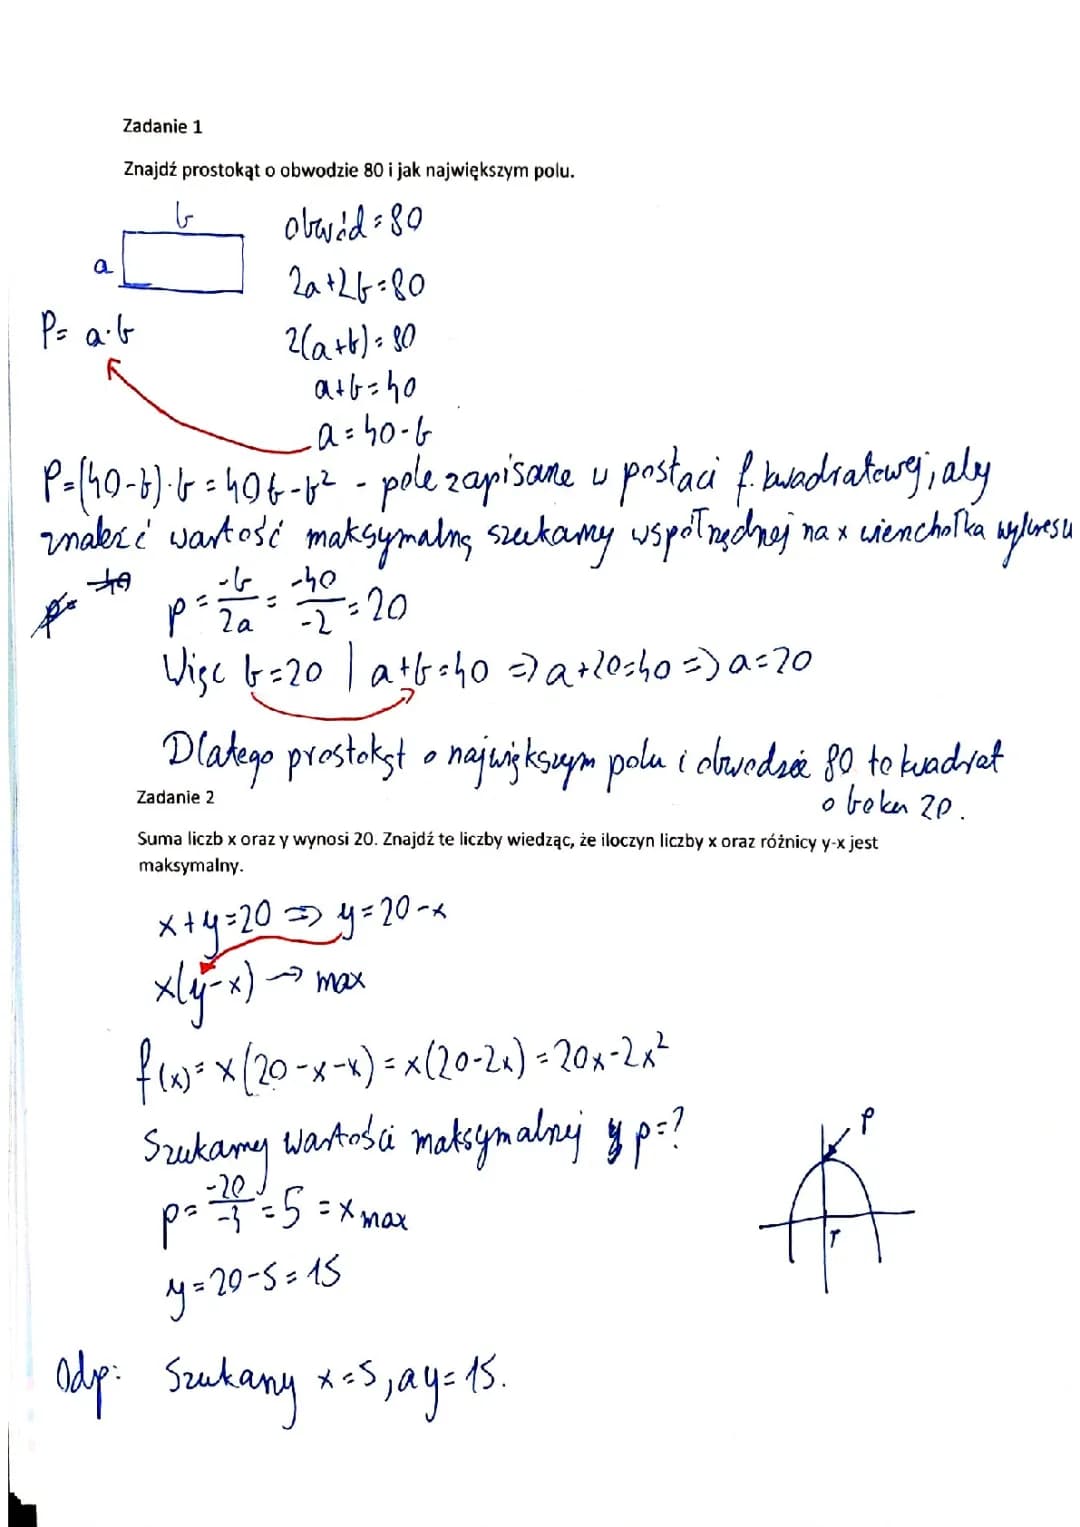 Zadanie 1
Znajdź prostokąt o obwodzie 80 i jak największym polu.
b
a
obwód = 80
2a+2b=80
P= a·b
2(a+b)=80
a+b=40
a=40-b
P=(40-b)·b=40b-b² - pole zapisane w postaci f. kwadratowej, aby
znaleźć wartość maksymalną szukamy współrzędnej na x wierzchołka wykresu
p = -b/2a = -40/-2 = 20
Więc b=20 | a+b=40 => a+20=40 => a=20
Dlatego prostokąt o największym polu i obwodzie 80 to kwadrat
o boku 20.
Zadanie 2
Suma liczb x oraz y wynosi 20. Znajdź te liczby wiedząc, że iloczyn liczby x oraz różnicy y-x jest
maksymalny.
x+y=20 => y=20-x
x(y-x) → max
f(x)= x(20-x-x) = x(20-2x) = 20x-2x²
Szukamy wartości maksymalnej p=?
p
p= -20/-4 = 5 = x max
y=20-5=15
Odp: Szukany x=5, a y=15.